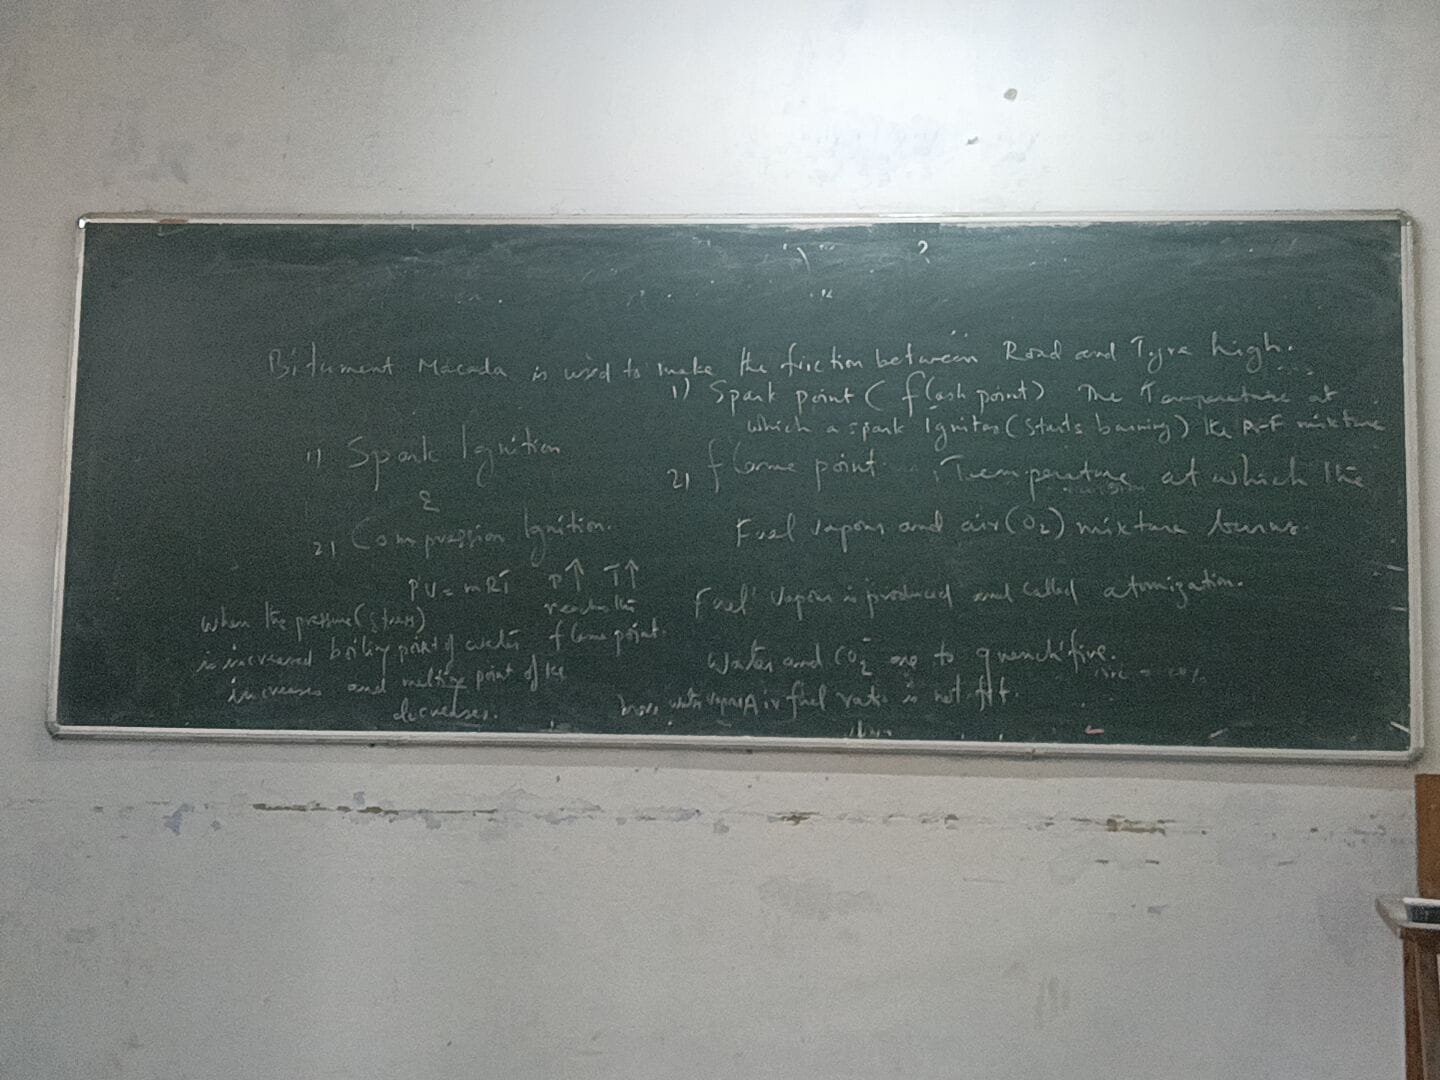 Bitument Macada is used to make the friction between Road and Tyre high.
1) Spark point (flash point) The Temperature at
which a spark Ignites (starts burning) the A-F mixture
2) flame point. Temperature at which the
Fuel vapour and air (O2) mixture burns.
Fuel vapour is produced and called atomization.
Water and CO2 are to quench fire.
water vapour Air fuel ratio is not fit.
1) Spark Ignition
&
2) Compression Ignition.
PV = mRT P↑ T↑
reaches the
flame point.
When the pressure (stress)
is increased boiling point of water
increases and melting point of ice
decreases.